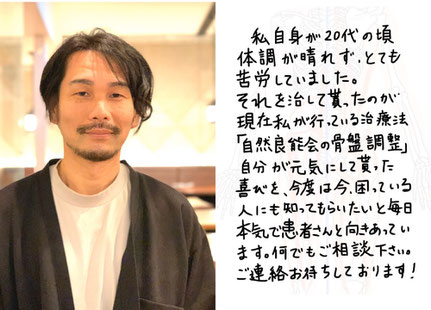 私自身が20代の頃
体調が晴れず、とても
苦労していました。
それを治して貰ったのが
現在私が行っている治療法
「自然良能会の骨盤調整」
自分が元気にして貰った
喜びを、今度は今、困っている
人にも知ってもらいたいと毎日
本気で患者さんと向きあってい
ます。何でもご相談下さい。
ご連絡お待ちしております!